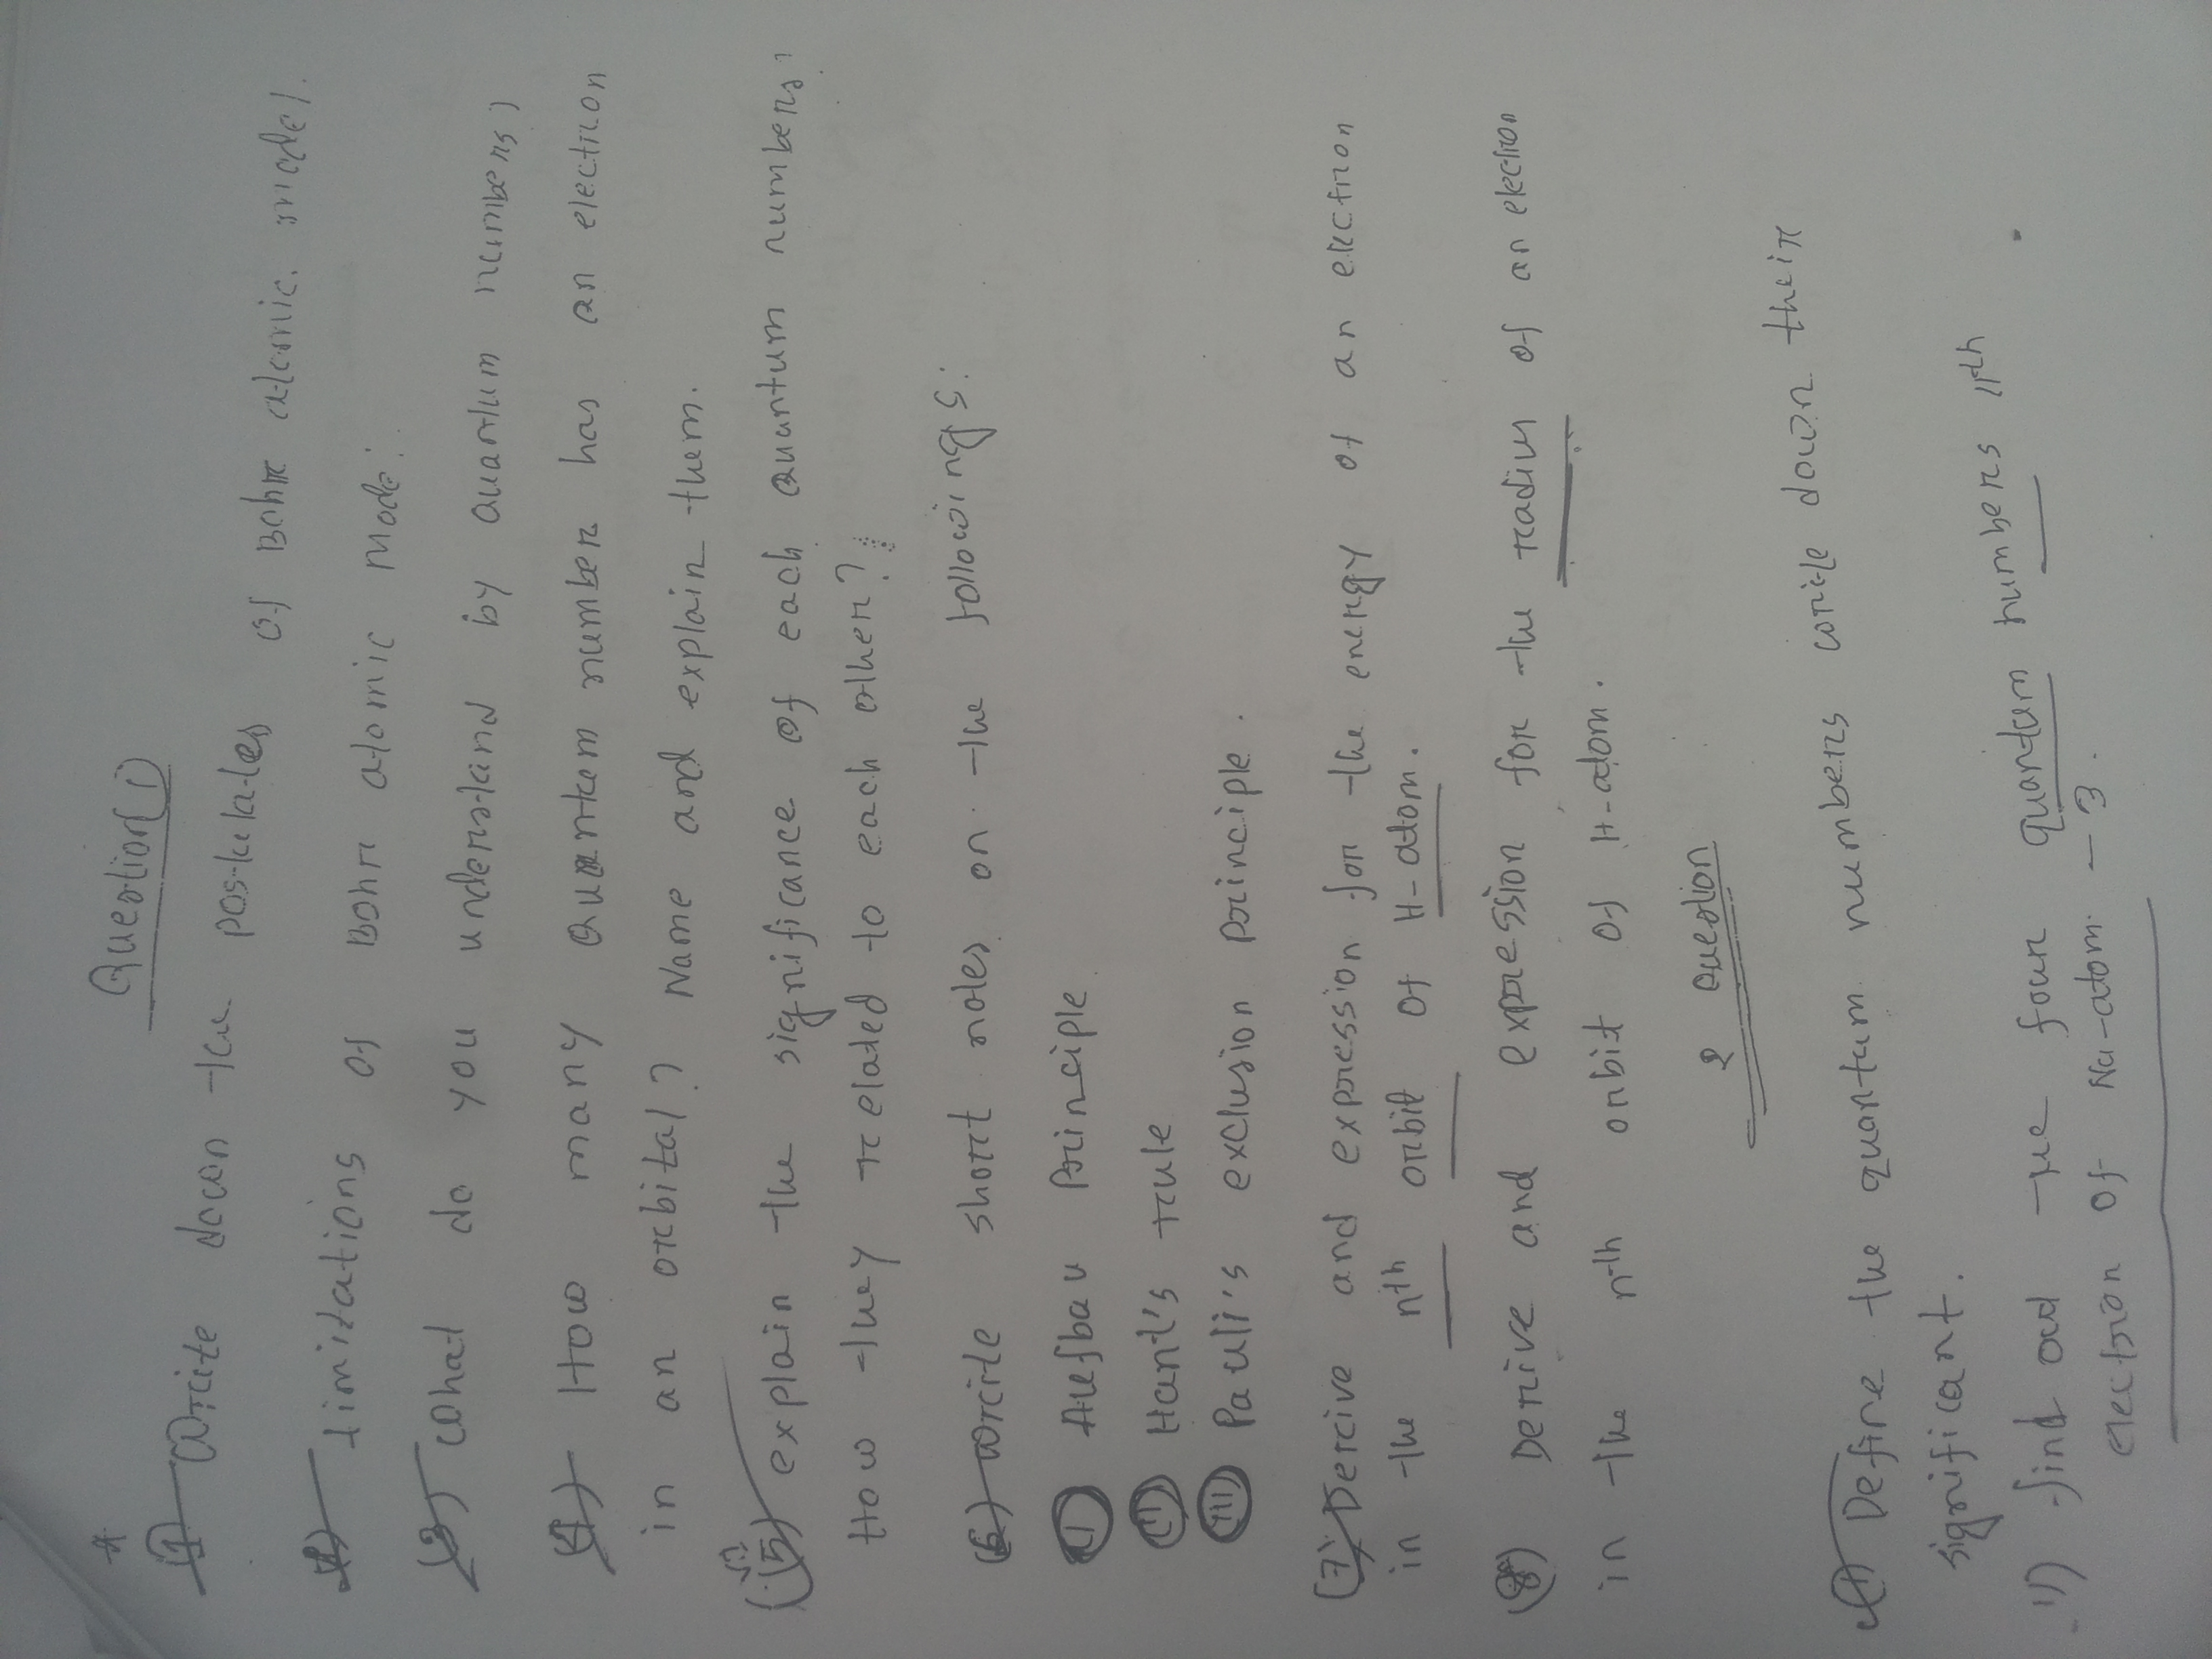 Question(1)
(1) Write down the postulates of Bohr atomic model.
(2) Limitations of Bohr atomic mode:
(3) What do you understand by quantum numbers?
(4) How many Quantum number has an electron
in an orbital? Name and explain them.
(5) explain the significance of each quantum numbers?
How they related to each other?
(6) write short notes on the followings:
(I) Aufbau Principle
(II) Hant's rule
(III) Pauli's exclusion principle.
(7) Derive and expression for the energy of an electron
in the nth orbit of H-atom.
(8) Derive and expression for the radius of an electron
in the nth orbit of H-atom.
2 Question
Define the quantum numbers write down their
significant.
II) find out the four quantum numbers 11th
electron of Na-atom. - 3.